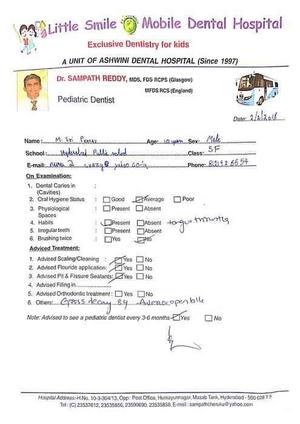 Little Smile Mobile Dental Hospital
Exclusive Dentistry for kids
A UNIT OF ASHWINI DENTAL HOSPITAL (Since 1997)
Dr. SAMPATH REDDY, MDS, FDS RCPS (Glasgow)
MFDS RCS (England)
Pediatric Dentist
Date:
Name: M Sri Age: 10 years Sex: Male
School: Hyderabad Public school Class: 5F
E-mail: Phone:
On Examination:
1. Dental Caries in :
(Cavities)
2. Oral Hygiene Status : Good Average Poor
3. Physiological : Present Absent
Spaces
4. Habits : Present Absent
5. Irregular teeth : Present Absent
6. Brushing twice : Yes No
Advised Treatment:
1. Advised Scaling/Cleaning : Yes No
2. Advised Flouride application: Yes No
3. Advised Pit & Fissure Sealants: Yes No
4. Advised Filling in
5. Advised Orthodontic treatment : Yes No
6. Others: Gross decay
Note: Advised to see a pediatric dentist every 3-6 months Yes No
Hospital Address: H.No. 10-3-304/13, Opp: Post Office, Humayunnagar, Masab Tank, Hyderabad - 500 028
Tel: (C) 23537612, 23535856, 23590690, 23535858. E-mail: sampathcheruku@yahoo.com